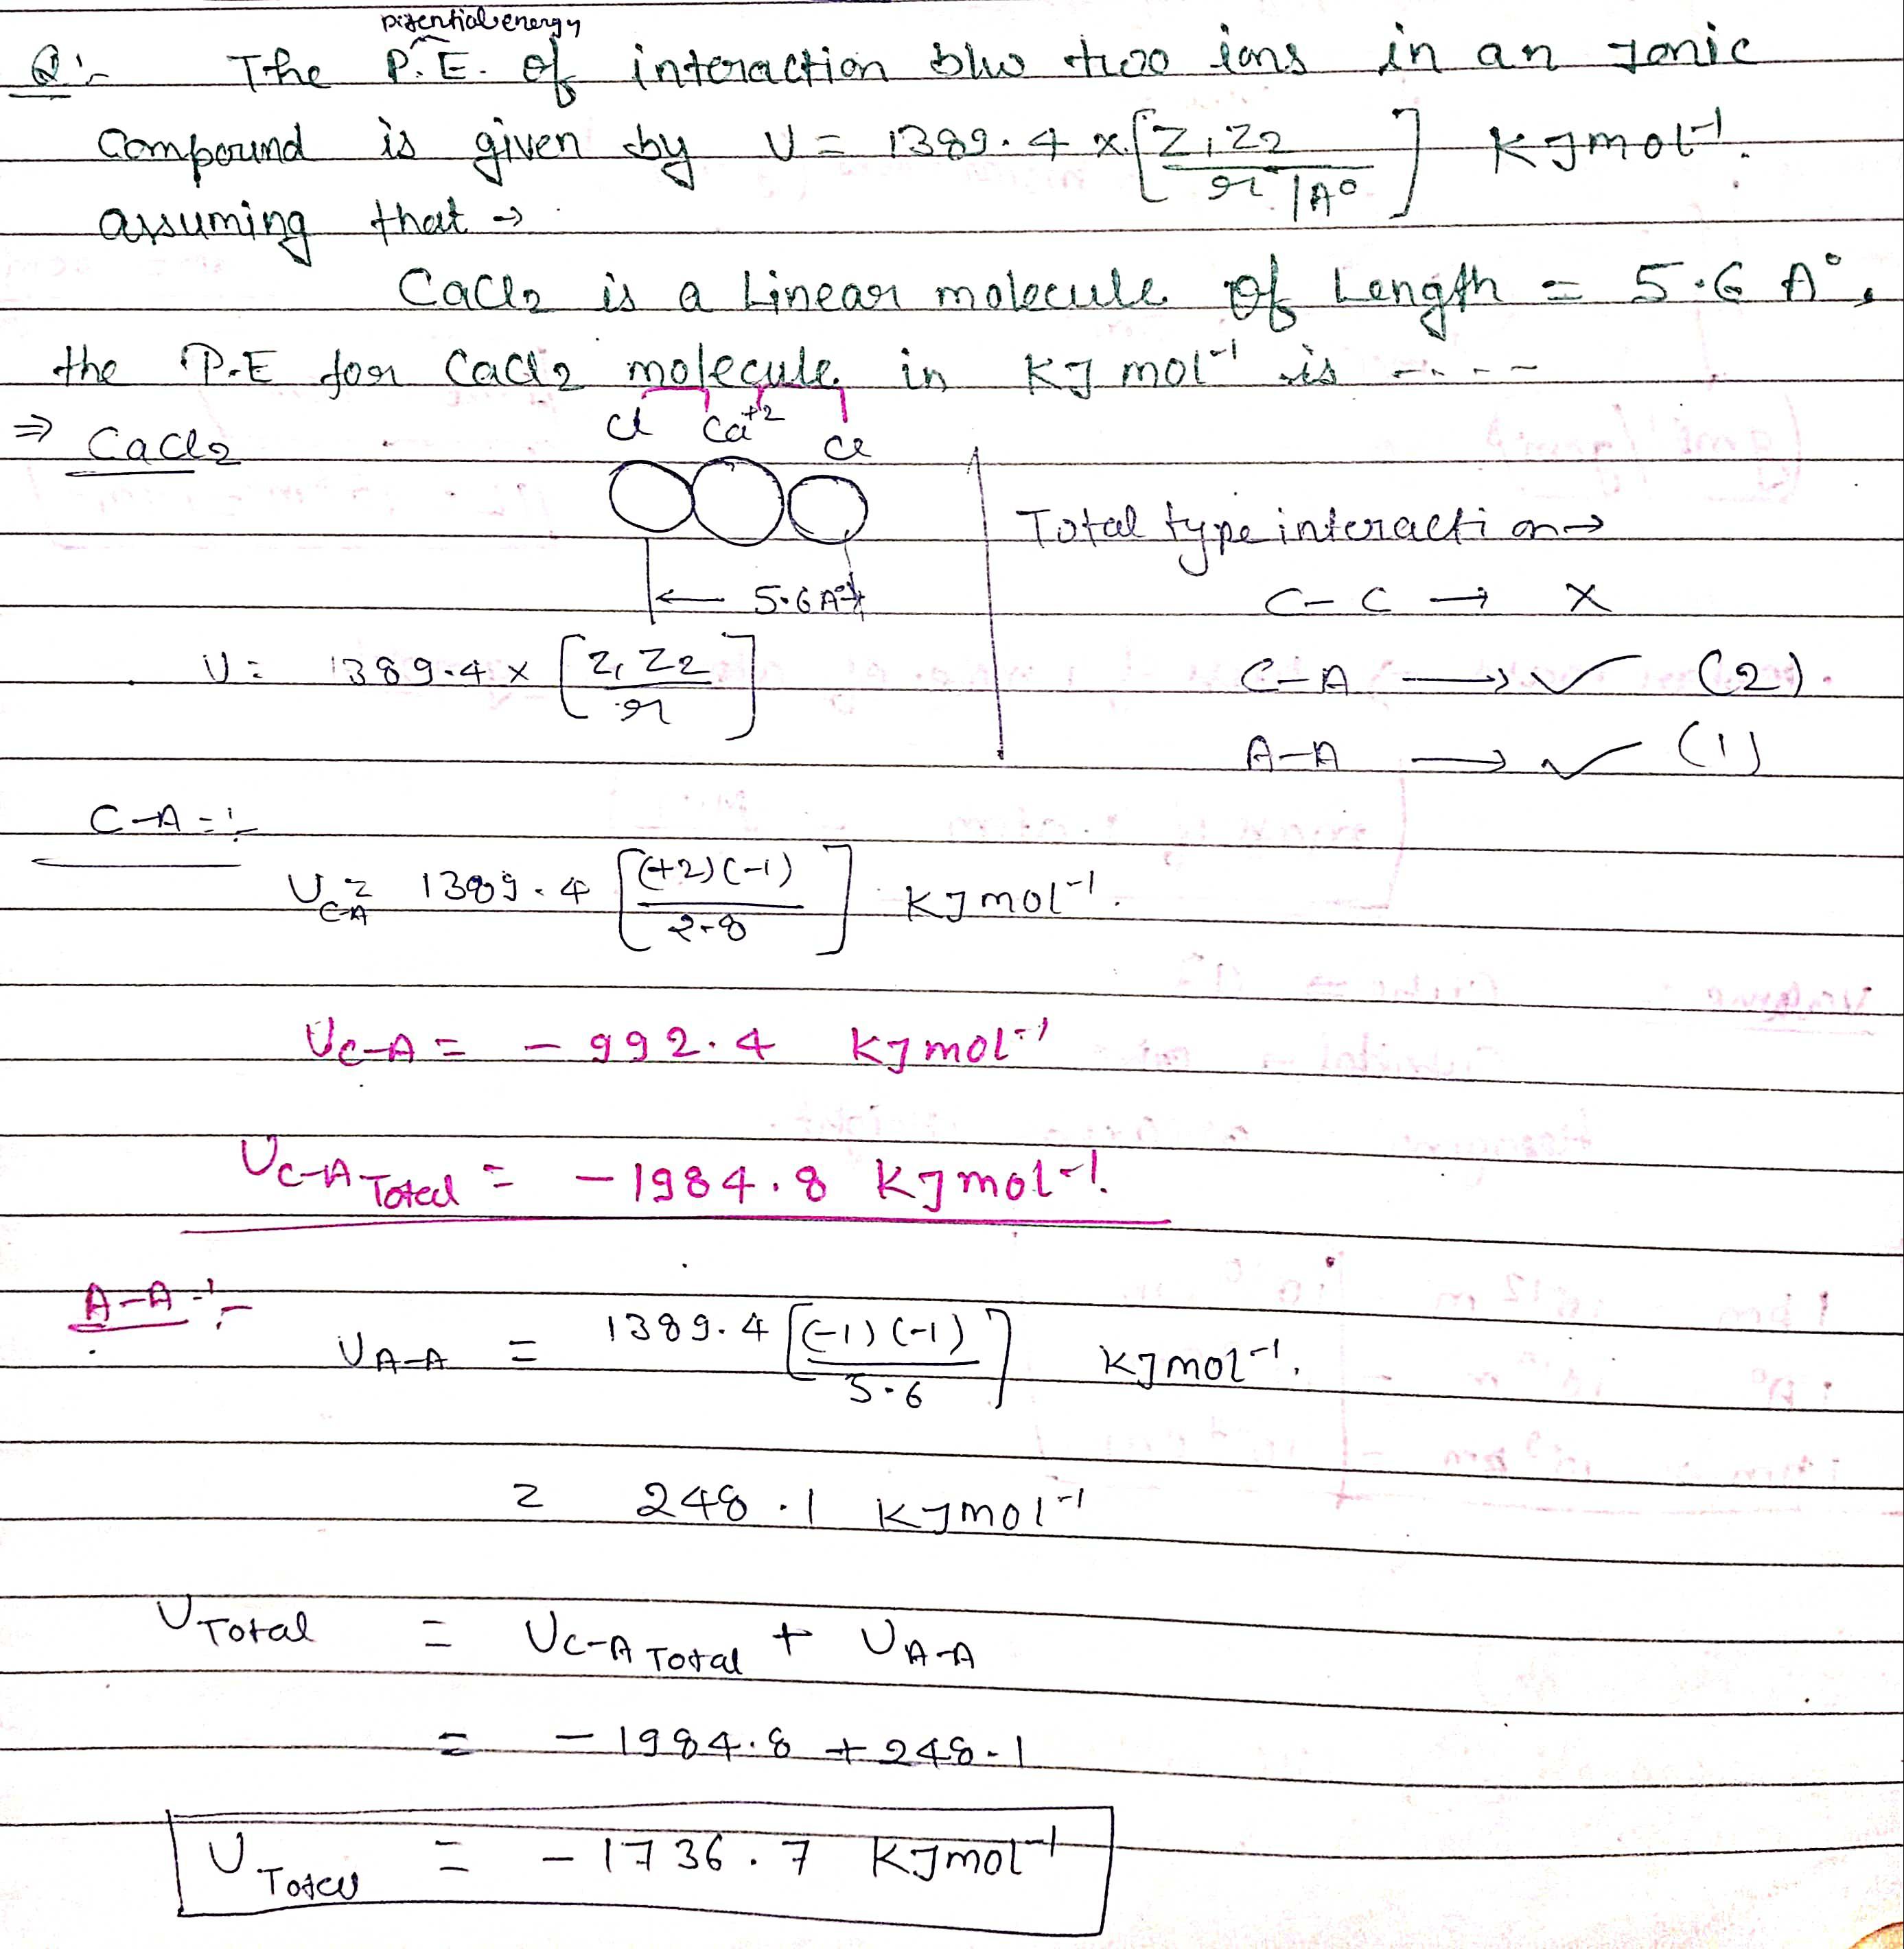 potential energy
Q:- The P.E. of interaction b/w two ions in an Ionic
Compound is given by U = 1389.4 x [Z1Z2 / r/A°] KJmol-1.
assuming that →
CaCl2 is a Linear molecule of Length = 5.6 A°,
the P.E for CaCl2 molecule in KJ mol-1 is ----
⇒ CaCl2
Cl Ca+2 Cl
5.6A°
Total type interaction →
C-C → X
C-A → ✓ (2).
A-A → ✓ (1)
U = 1389.4 x [Z1Z2 / r]
C-A =:-
UC-A = 1389.4 [(+2)(-1) / 2.8] KJmol-1.
UC-A = - 992.4 KJmol-1
UC-A Total = - 1984.8 KJmol-1.
A-A :-
UA-A = 1389.4 [(-1)(-1) / 5.6] KJmol-1.
= 248.1 KJmol-1
UTotal = UC-A Total + UA-A
= - 1984.8 + 248.1
UTotal = - 1736.7 KJmol-1